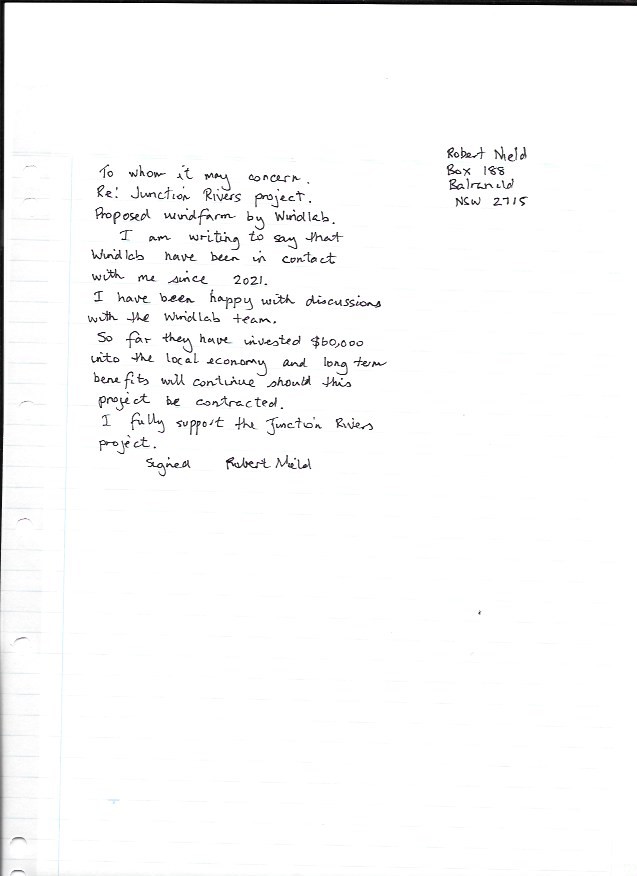 Robert Nield
Box 188
Balranald
NSW 2715
To whom it may concern.
Re: Junction Rivers project.
Proposed windfarm by Windlab.
I am writing to say that
Windlab have been in contact
with me since 2021.
I have been happy with discussions
with the Windlab team.
So far they have invested $60,000
into the local economy and long term
benefits will continue should this
project be contracted.
I fully support the Junction Rivers
project.
Signed Robert Nield